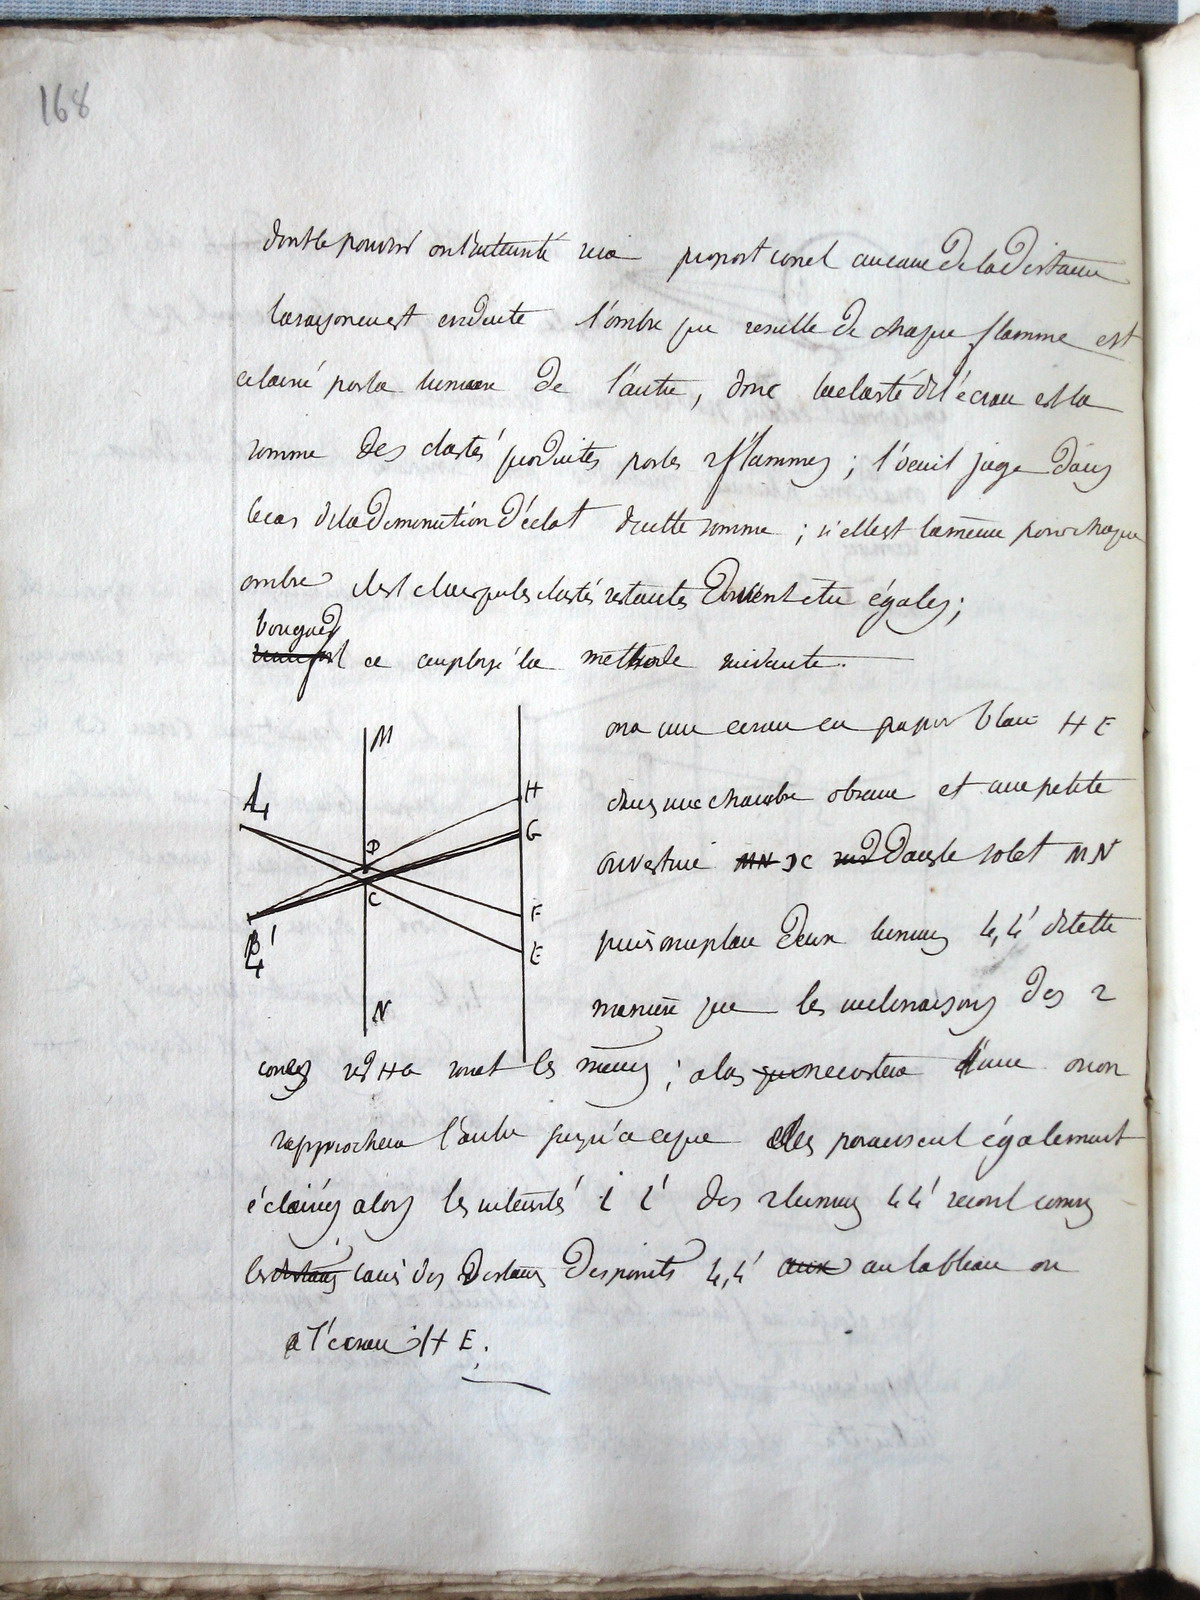 168
dont le pouvoir ou l'intensité sera proportionel au carré de la distance
le rayonement ensuite l'ombre que resulte de chaque flamme est
eclairé par la lumiere de l'autre, donc la clarté de l'écran est la
somme des clartés produites par les 2 flammes ; l'oeuil juge dans
le cas de la diminution d'éclat de cette somme ; si elle est la même pour chaque
ombre il est clair que les clartés restantes doivent etre égales ;
bouguer
a employé la méthode suivante.
on a une ecran en papier blanc H E
dans une chambre obscure et une petite
ouverture MN DC dans le volet MN
puis on place deux lumieres L, L' de telle
maniere que les inclinaisons des 2
M
A
L
H
G
D
C
F
B'
L'
E
N
cones sur HE soient les mêmes ; alors on ecartera l'une ou on
rapprochera l'autre jusqu'a ce que elles paraissent également
éclairées alors les intensités i i' des 2 lumieres L L' seront comme
les distances carrés des distances des points L, L' aux au tableau ou
a l'ecran H E.